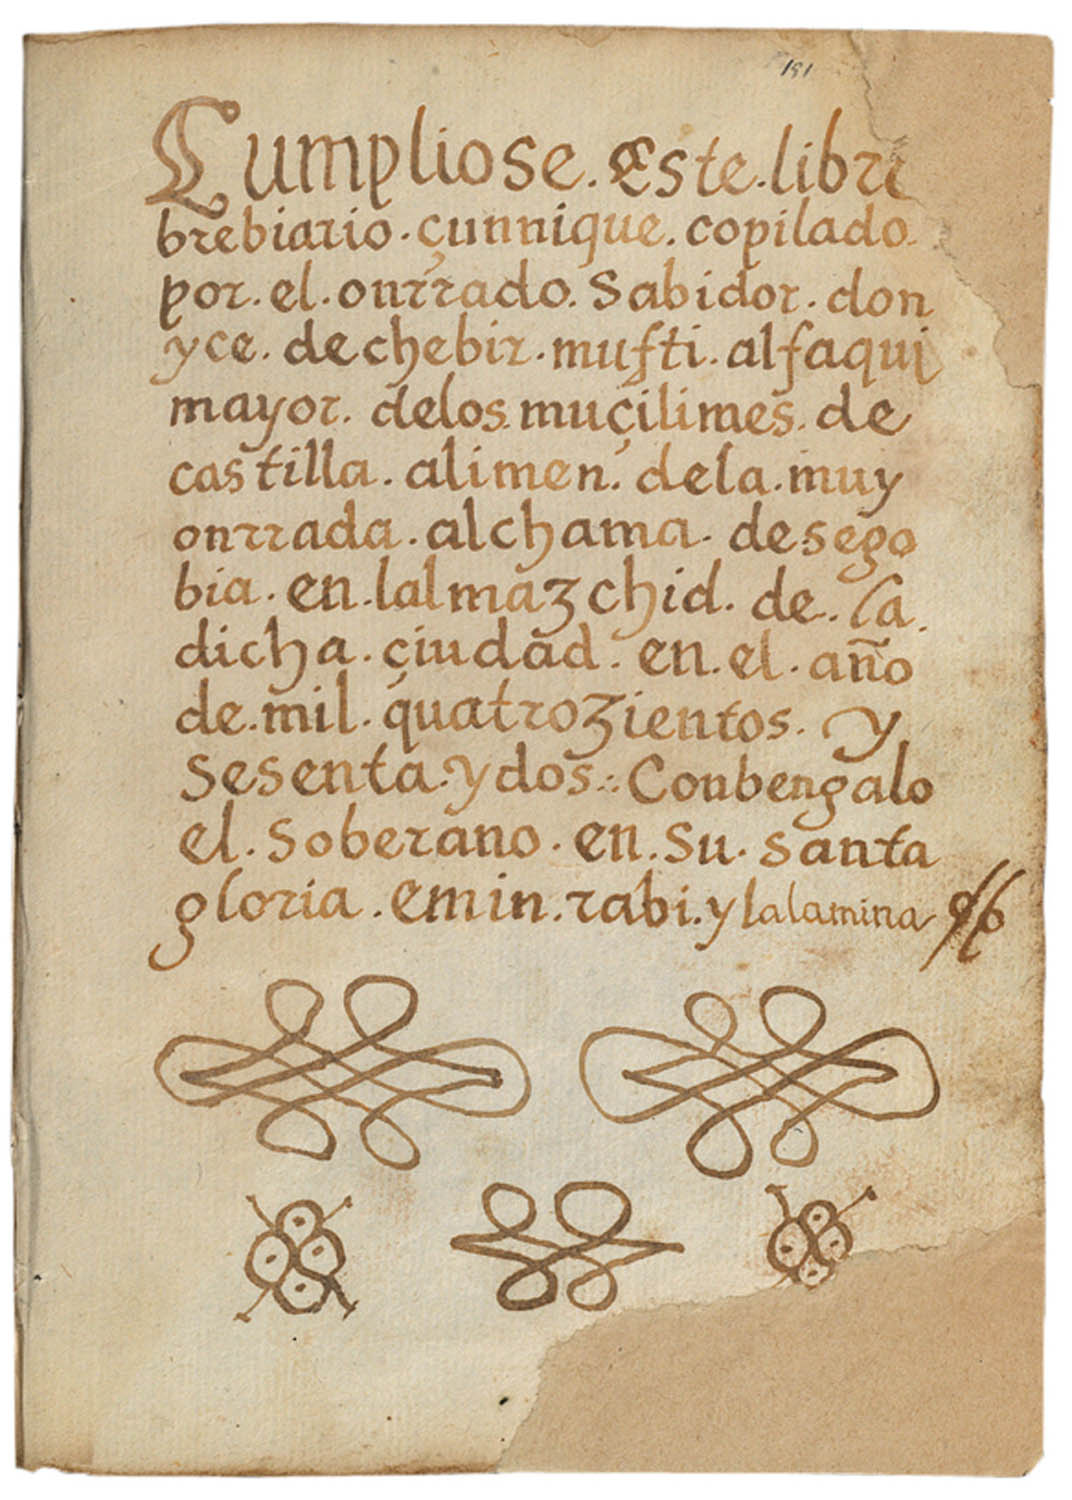 191
Cumpliose. Este. libro
brebiario. çunnique. copilado
por. el. onrrado. Sabidor. don
yce. de chebir. mufti. alfaqui
mayor. delos muçilimes. de
castilla. alimen. dela. muy
onrrada. alchama. de sego
bia. en. lalmazchid. de. la.
dicha. çiudad. en. el. año
de. mil. quatrozientos. y
Sesenta. y dos.:. Conbengalo
el. Soberano. en. Su. santa
gloria. emin. rabi. y lalamina